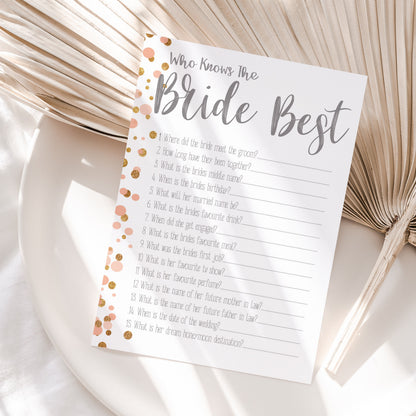 Who Knows The
Bride Best
1. Where did the bride meet the groom?
2. How long have they been together?
3. What is the brides middle name?
4. When is the brides birthday?
5. What will her married name be?
6. What is the brides favourite drink?
7. When did she get engaged?
8. What is the brides favourite meal?
9. What was the brides first job?
10. What is her favourite tv show?
11. What is her favourite perfume?
12. What is the name of her future mother in law?
13. What is the name of her future father in law?
14. When is the date of the wedding?
15. What is her dream honeymoon destination?